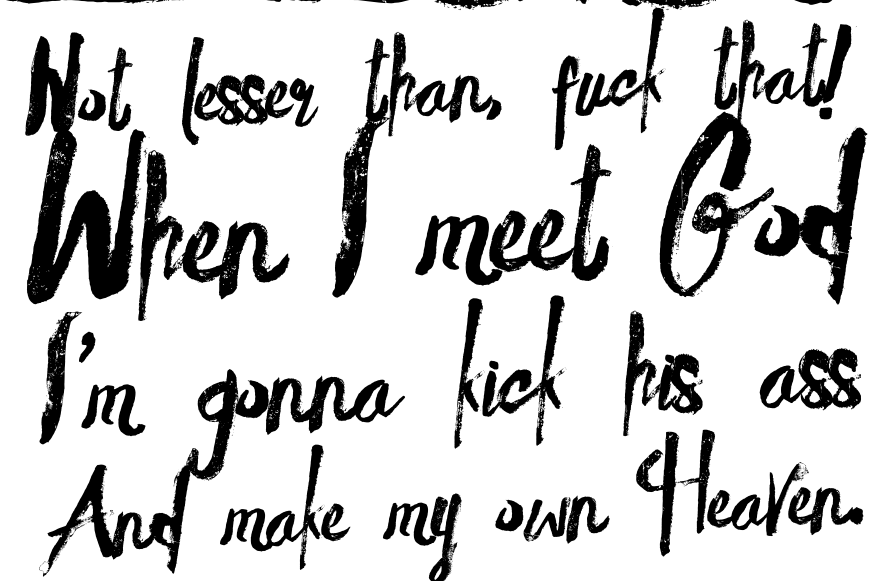 Not lesser than, fuck that!
When I meet God
I'm gonna kick his ass
And make my own Heaven.